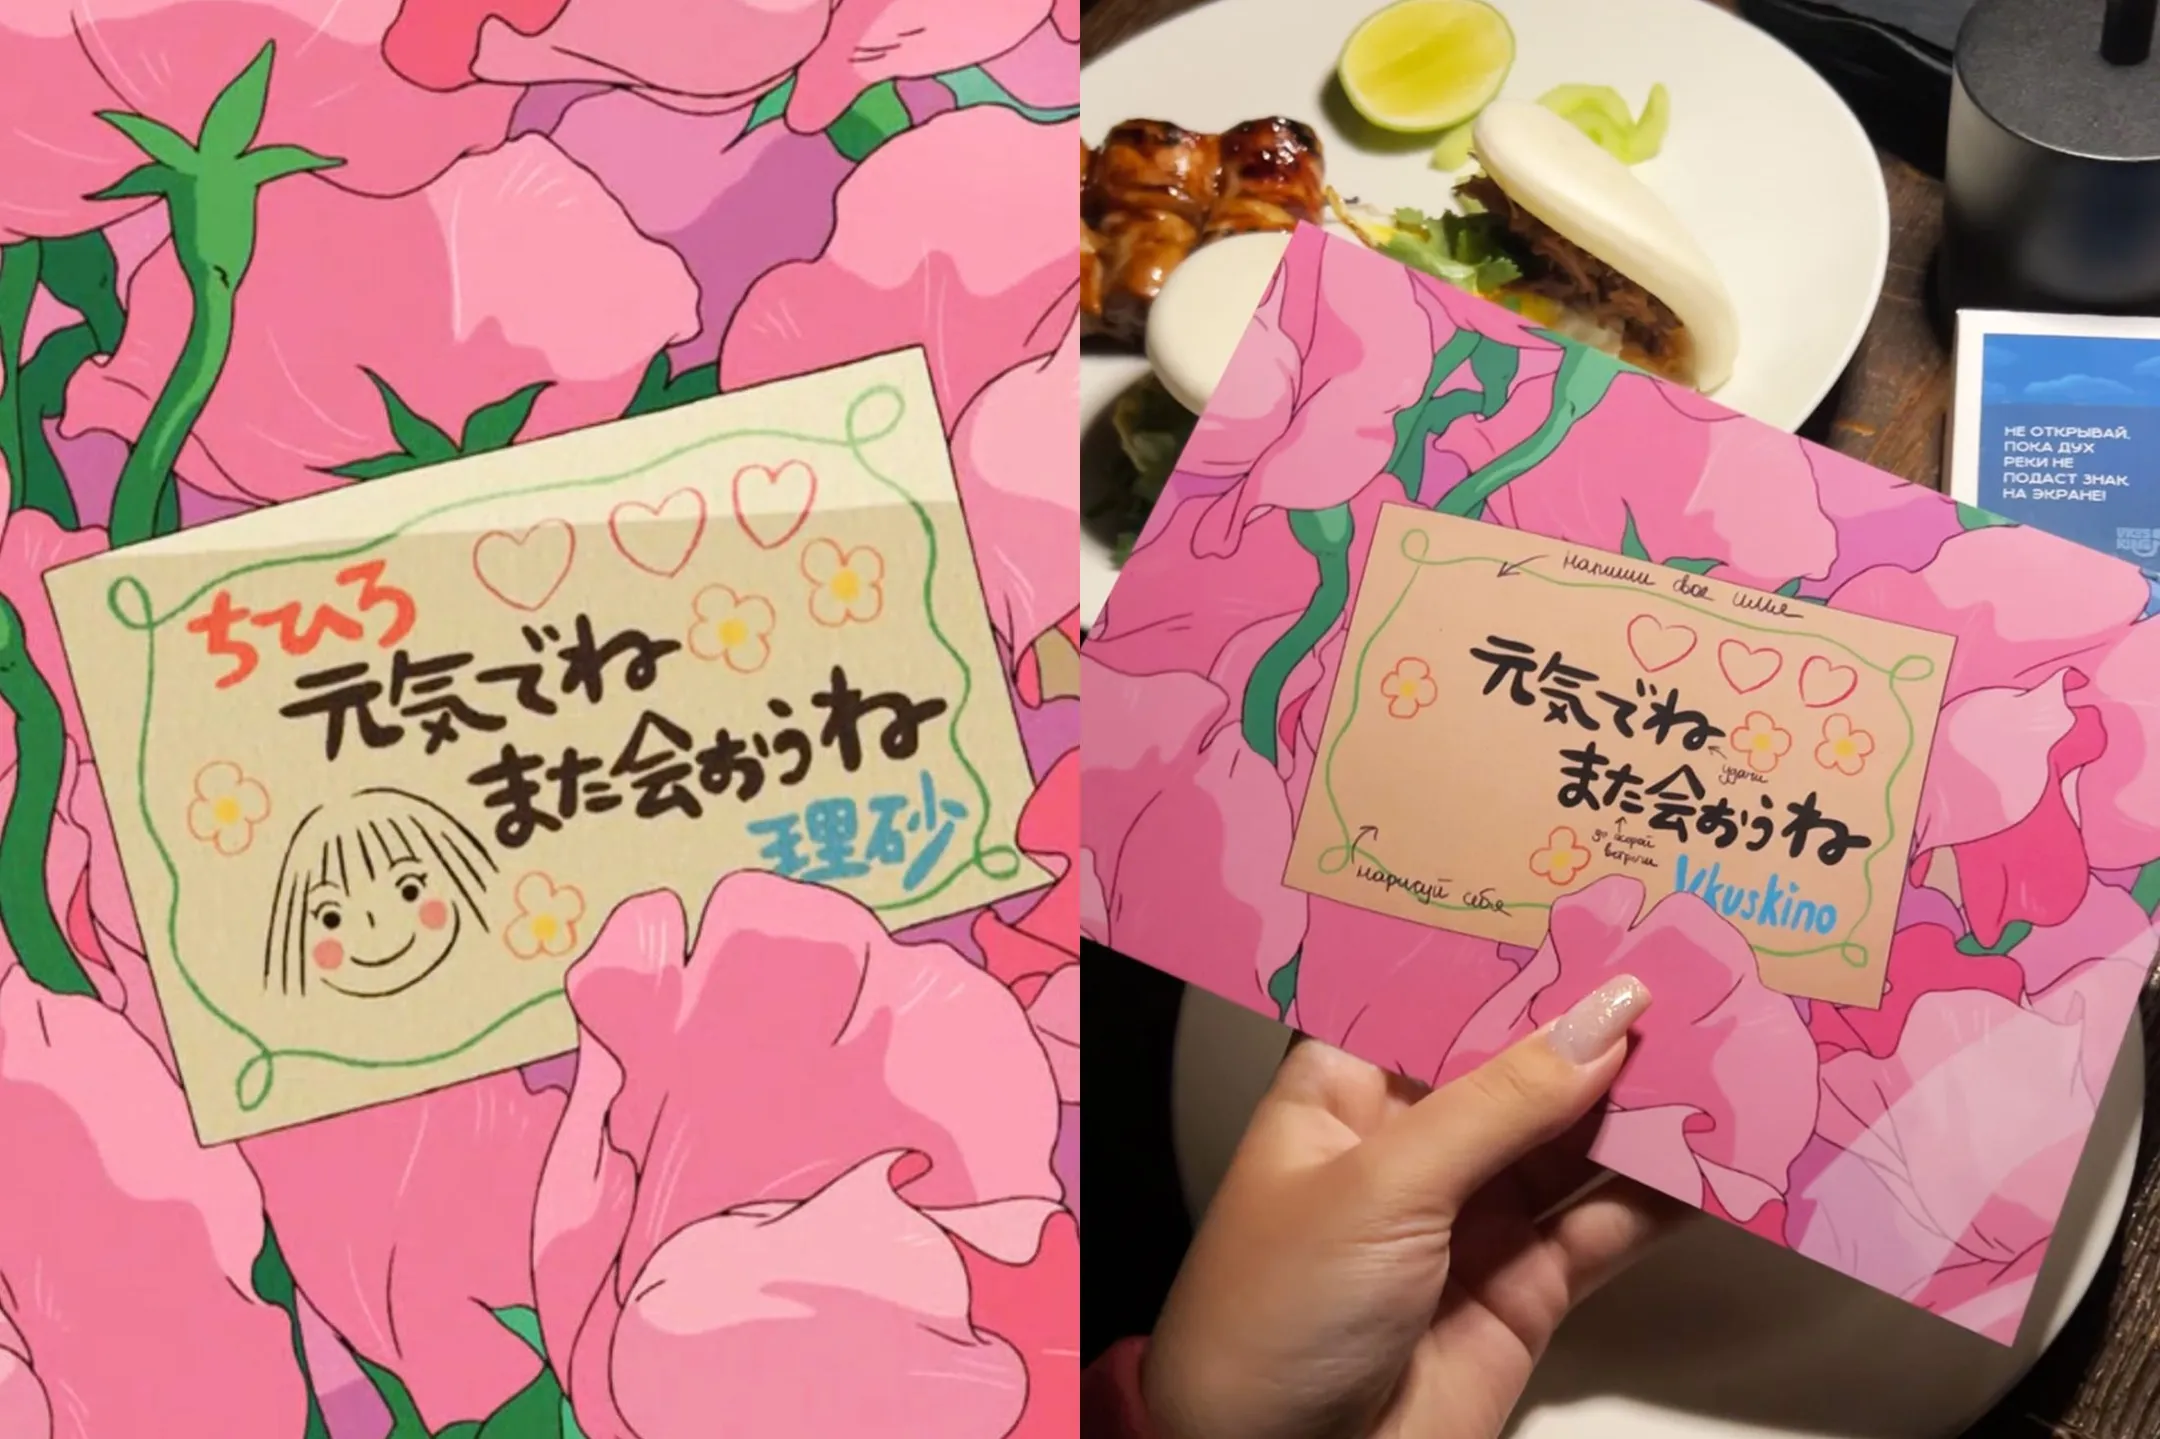 ちひろ
元気でね
また会おうね
理砂
напиши свое имя
元気でね
удачи
また会おうね
до скорой
встречи
Vkuskino
нарисуй себя
НЕ ОТКРЫВАЙ,
ПОКА ДУХ
РЕКИ НЕ
ПОДАСТ ЗНАК
НА ЭКРАНЕ!